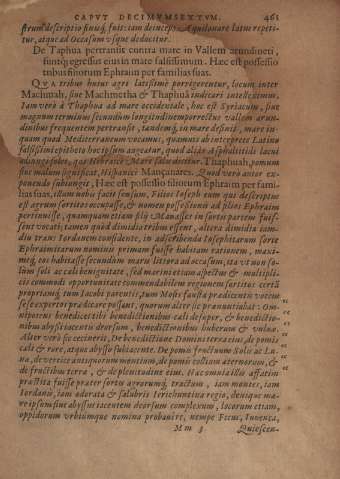 CAPVT DECIMVMSEXTVM. 461
strum descriptio finiq, fuit: tam deinceps Aquilonare latus repeti-
tur, atque ad Occasum vsque deducitur.
De Taphua pertransit contra mare in Vallem arundineti,
suntq; egressus eius in mare salsissimum. Hæc est possessio
tribus filiorum Ephraim per familias suas.
QVA tribus huius agri latissimè porrigerentur, locum inter
Machmas, siue Machmetha & Thaphuà indicari intelleximus.
Iam verò à Thaphoa ad mare occidentale, hoc est Syriacum, siue
magnum terminus secundum longitudinem porrectus vallem arun-
dinibus frequentem pertransit, tandemq, in mare desinit, mare in-
quam quod Mediterraneum vocamus, quamuis ab interprete Latino
salsissimi epitheto hoc ipsum augeatur, quod aliàs Asphaltitidi lacui
quas Hebraicè Mare salis dicitur. Thaphuah, pomum
siue malum significat, Hispani Mançanares. Quod verò autor ex-
ponendo subiungit, Hæc est possessio filiorum Ephraim per fami-
lias suas, illum nobis facit sensum, Filios Ioseph eum qui descriptus
est agrum sortitos occupasse, & nomen possessionis ad filios Ephraim
pertinuisse, quamquam etiam filij Manasser in sortis partem fuis-
sent vocati; tamen quòd dimidia tribus esset, altera dimidia tam-
diu trans Iordanem consistente, in adscribenda Iosephitarum sorte
Ephraimitarum nominis primam fuisse habitam rationem, maxi-
meq, eos habitasse secundùm maris littora ad occasum, ita vt non so-
lùm soli ac cœli benignitate, sed marini etiam aspectus & multipli-
cis commodi opportunitate commendabilem regionem sortitos certà
propriamq́ tum Iacobi parentis, tum Mosis fausta prædicentis votone
sese experiri prædicare possent, quorum alter sic pronuntiabat: Om-
nipotens benedicet tibi benedictionibus cæli desuper, & benedictio-
nibus abyssi iacentis deorsum, benedictionibus vberum & vuluæ.
Alter verò sic cecinerit, De benedictione Domini terra eius, de pomis
cæli & rore, atque abysso subiacente. De pomis fructuum Solis ac Lu-
næ, de vertice antiquorum montium, de pomis collium æternorum, &
de frugibus terræ, & de plenitudine eius. Hac omnia illis affatim
præstita fuisse præter sortes agrorumq́, tractus, iam montes, iam
Iordanis, iam odorata & salubris Ierichuntina regio, denique ma-
re ipsum siue abyssus iacentem deorsum complexum, locorum etiam,
oppidorum vrbiumque nomina probauere, nempe Ficus, Iuuenca,
M m 3 Quiescen-